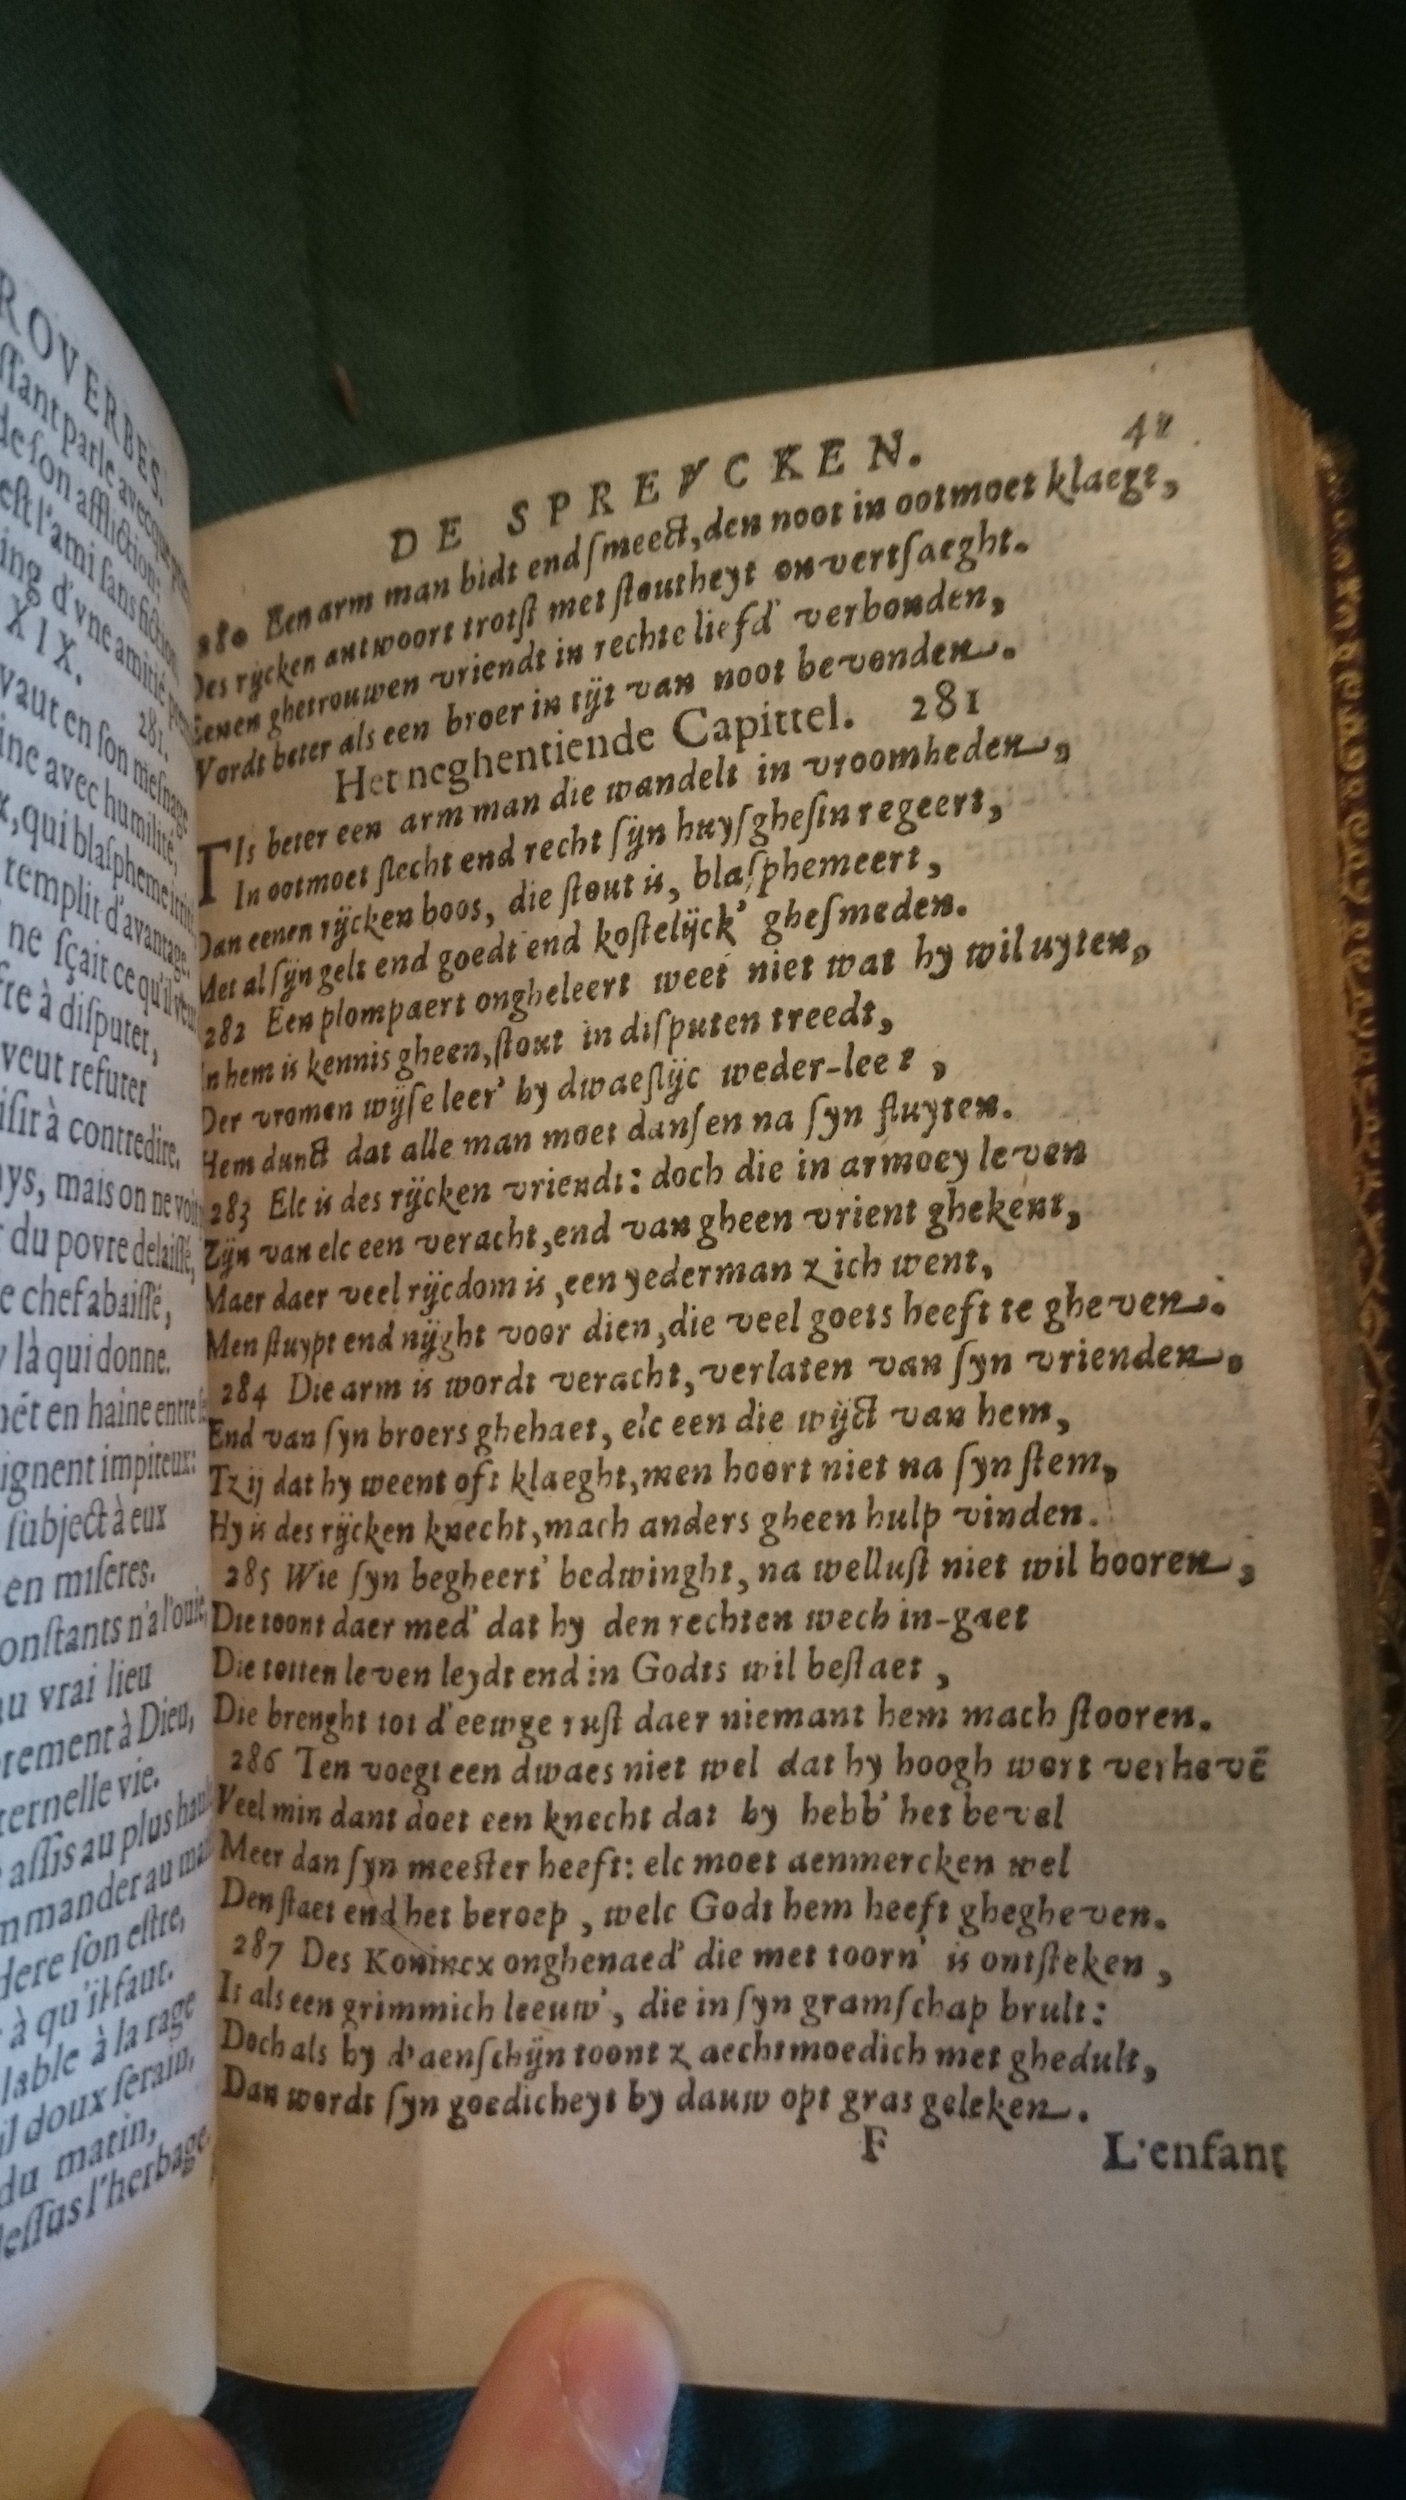 ROVERBES.
ſſant parle avecque
de ſon affliction:
eſt l'ami ſans fiction
ing d'vne amitié
XIX.
281.
vaut en ſon meſnage
ine avec humilité,
qui blaſpheme
remplit d'avantage.
ne ſçait ce qu'il veut
re à diſputer,
veut refuter
iſir à contredire.
ys, mais on ne voit
du povre delaiſſé,
e chef abaiſſé,
là qui donne.
en haine entre
ignent impiteux:
ſubject à eux
en miſeres.
onſtants n'a l'ouïe,
au vrai lieu
rement à Dieu,
ternelle vie.
aſſis au plus haut
mmander au
dere ſon eſtre,
à qu'il faut.
lable à la rage
il doux ſerain,
du matin,
deſſus l'herbage.
DE SPREVCKEN. 
280 Een arm man bidt end ſmeect, den noot in ootmoet klaegt,
Des rijcken antwoort trotſt met ſtoutheyt onvertſaeght.
Eenen ghetrouwen vriendt in rechte liefd' verbonden,
Vordt beter als een broer in tijt van noot bevonden.
Het neghentiende Capittel. 281
TIs beter een arm man die wandelt in vroomheden,
In ootmoet ſlecht end recht ſijn huyſgheſin regeert,
Dan eenen rijcken boos, die ſtout is, blaſphemeert,
Met al ſijn gelt end goedt end koſtelijck' gheſmeden.
282 Een plompaert ongheleert weet niet wat hy wil uyten,
In hem is kennis gheen, ſtout in diſputen treedt,
Der vromen wijſe leer' hy dwaeſlijc weder-leet,
Hem dunct dat alle man moet danſen na ſyn fluyten.
283 Elc is des rijcken vriendt: doch die in armoey leven
Zijn van elc een veracht, end van gheen vrient ghekent,
Maer daer veel rijcdom is, een yederman zich went,
Men ſtuypt end nijght voor dien, die veel goets heeft te gheven.
284 Die arm is wordt veracht, verlaten van ſyn vrienden,
End van ſyn broers ghehaet, elc een die wijct van hem,
Tzij dat hy weent oft klaeght, men hoort niet na ſyn ſtem,
Hy is des rijcken knecht, mach anders gheen hulp vinden.
285 Wie ſyn begheert' bedwinght, na welluſt niet wil hooren,
Die toont daer med' dat hy den rechten wech in-gaet
Die totten leven leydt end in Godts wil beſtaet,
Die brenght tot d'eewge ruſt daer niemant hem mach ſtooren.
286 Ten voegt een dwaes niet wel dat hy hoogh wort verhevē
Veel min dant doet een knecht dat hy hebb' het bevel
Meer dan ſyn meeſter heeft: elc moet aenmercken wel
Den ſtaet end het beroep, welc Godt hem heeft ghegheven.
287 Des Konincx onghenaed' die met toorn' is ontſteken,
Is als een grimmich leeuw', die in ſyn gramſchap brult:
Doch als hy d'aenſchijn toont zaechtmoedich met ghedult,
Dan wordt ſyn goedicheyt by dauw opt gras geleken.
F L'enfant